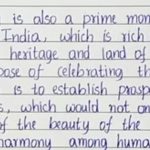 is also a prime mom
India, which is rich
heritage and land of
ose of celebrating th
is to establish prosp
s, which would not on
of the beauty of the
harmony among huma